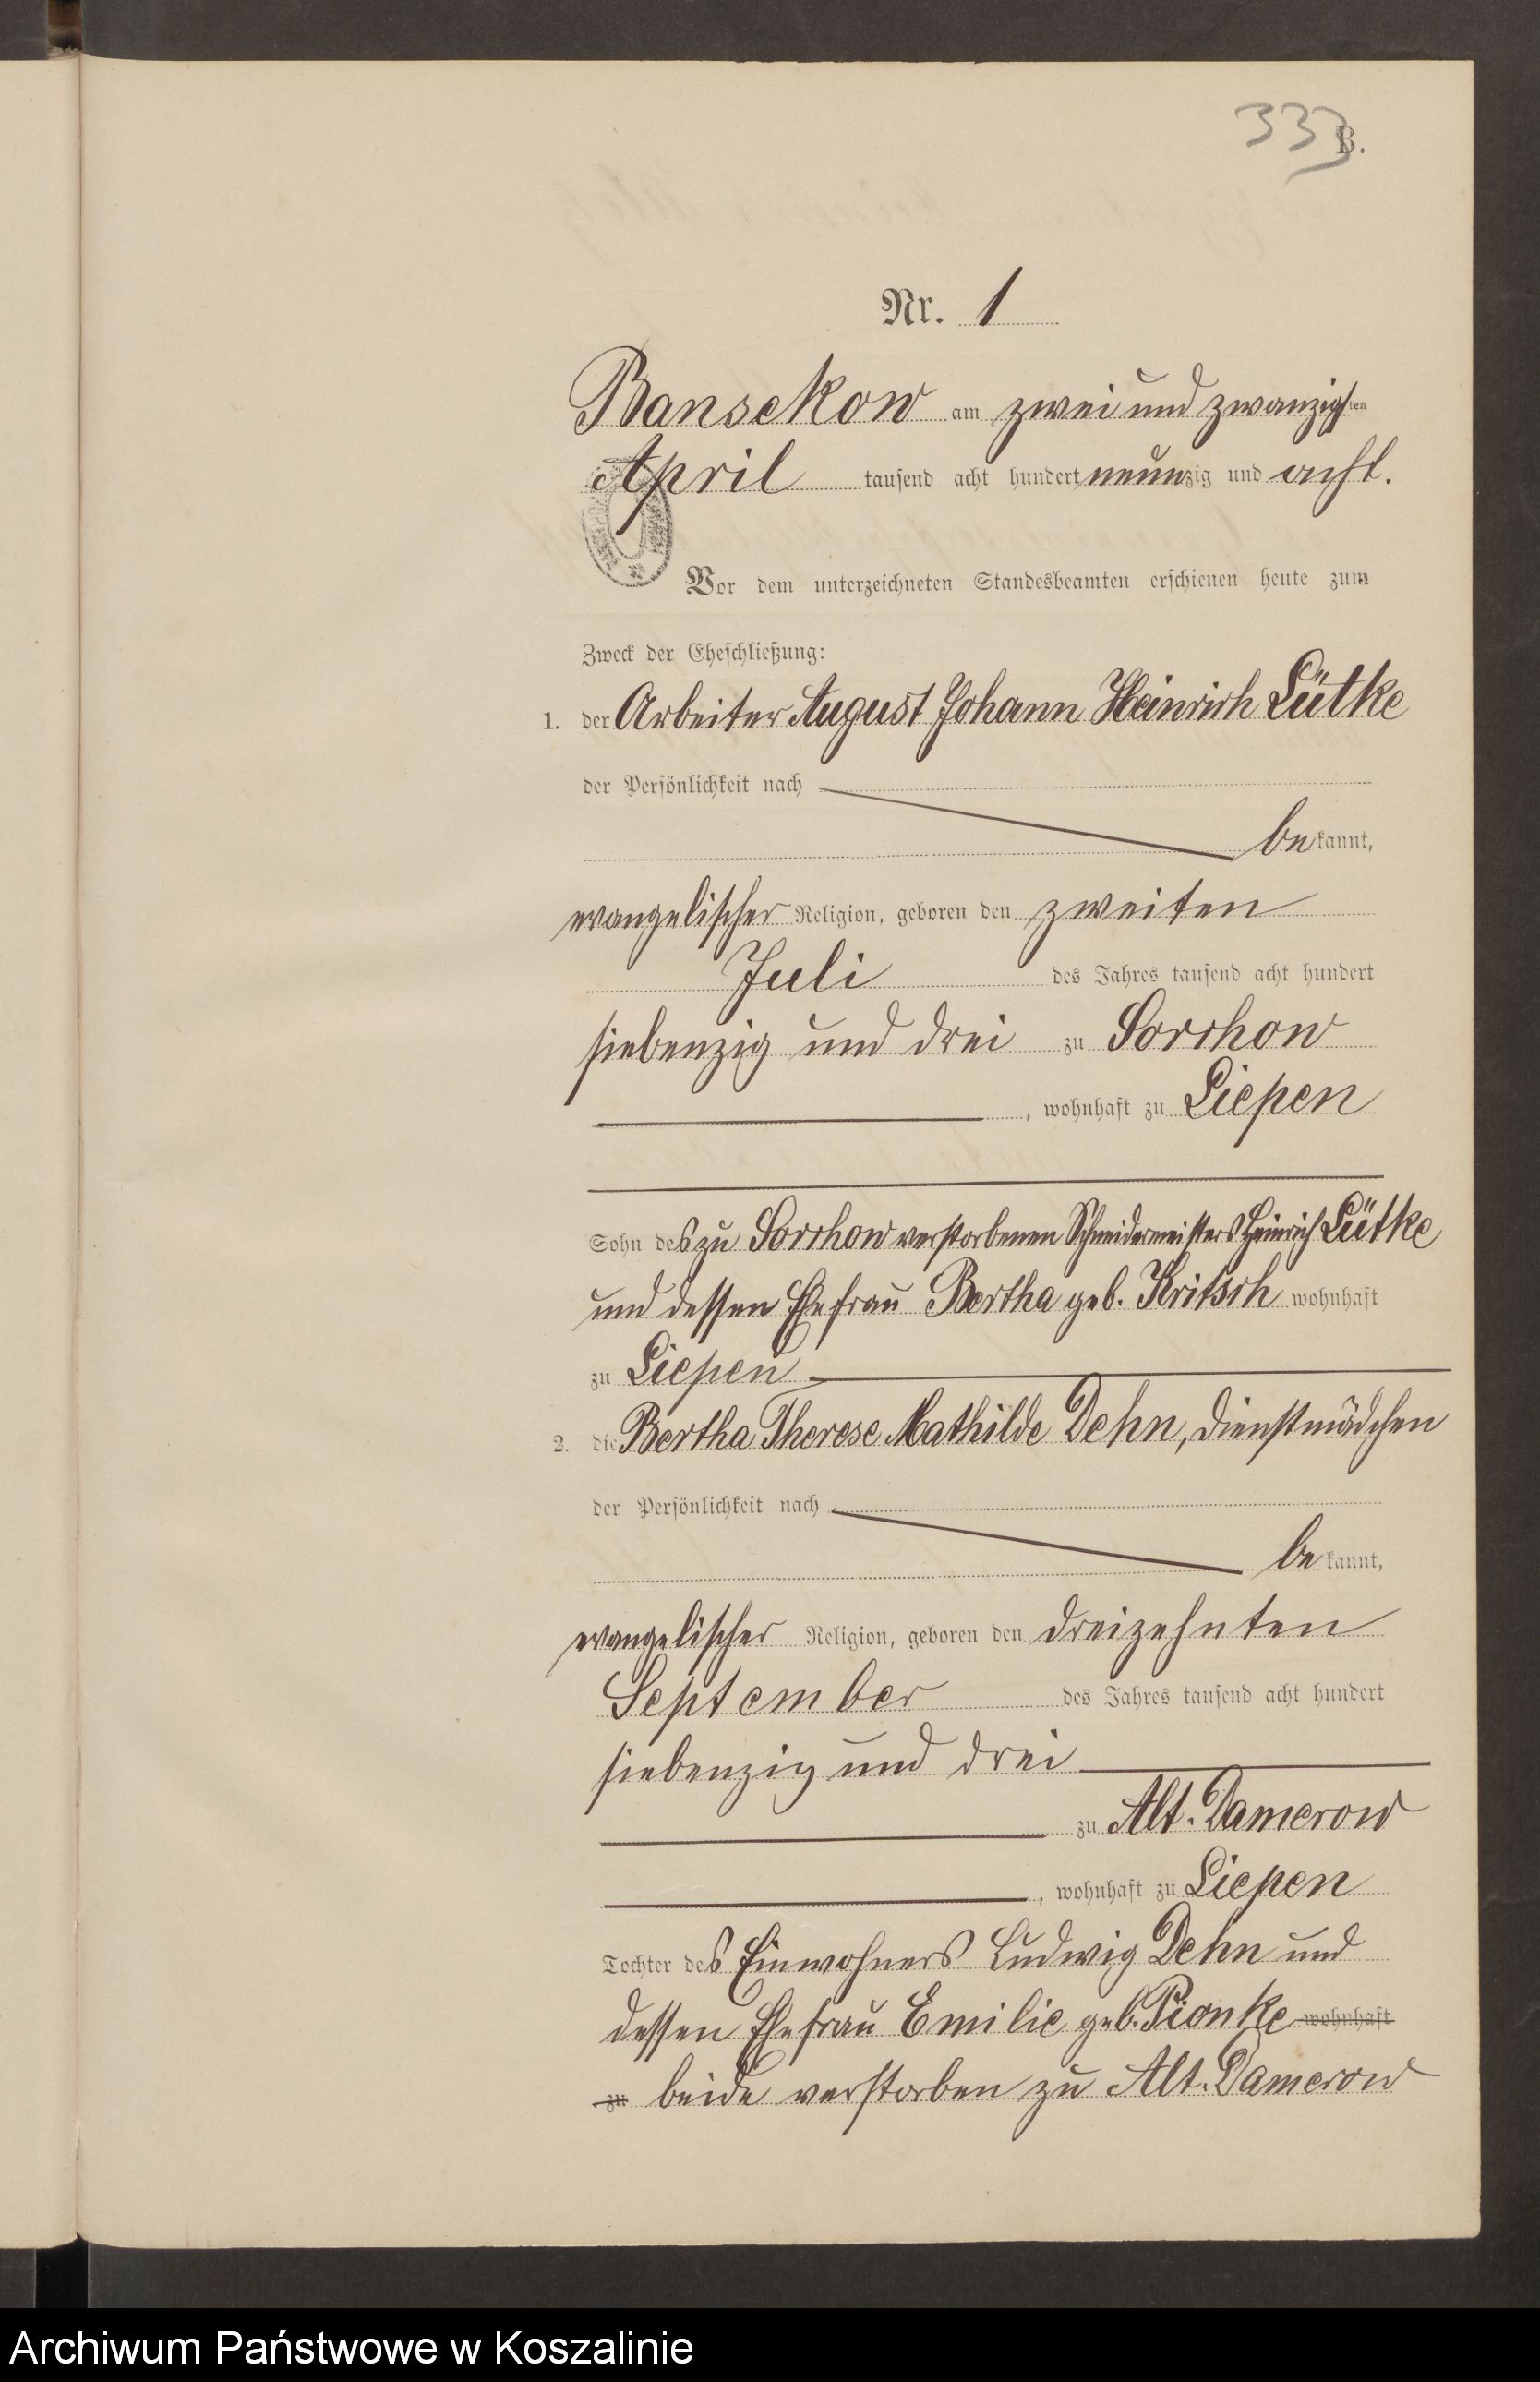 333
B.
Nr. 1
Bansekow am zwei und zwanzigsten
April tausend acht hundert neunzig und acht.
Vor dem unterzeichneten Standesbeamten erschienen heute zum
Zweck der Eheschließung:
1. der Arbeiter August Johann Heinrich Lütke
der Persönlichkeit nach
be kannt,
evangelischer Religion, geboren den zweiten
Juli des Jahres tausend acht hundert
siebenzig und drei zu Sorchow
, wohnhaft zu Liepen
Sohn des zu Sorchow verstorbenen Schneidermeisters Heinrich Lütke
und dessen Ehefrau Bertha geb. Kritsch wohnhaft
zu Liepen
2. die Bertha Therese Mathilde Dehn, Dienstmädchen
der Persönlichkeit nach
be kannt,
evangelischer Religion, geboren den dreizehnten
September des Jahres tausend acht hundert
siebenzig und drei
zu Alt. Damerow
, wohnhaft zu Liepen
Tochter des Einwohners Ludwig Dehn und
dessen Ehefrau Emilie geb. Pionke wohnhaft
zu beide verstorben zu Alt. Damerow
Archiwum Państwowe w Koszalinie